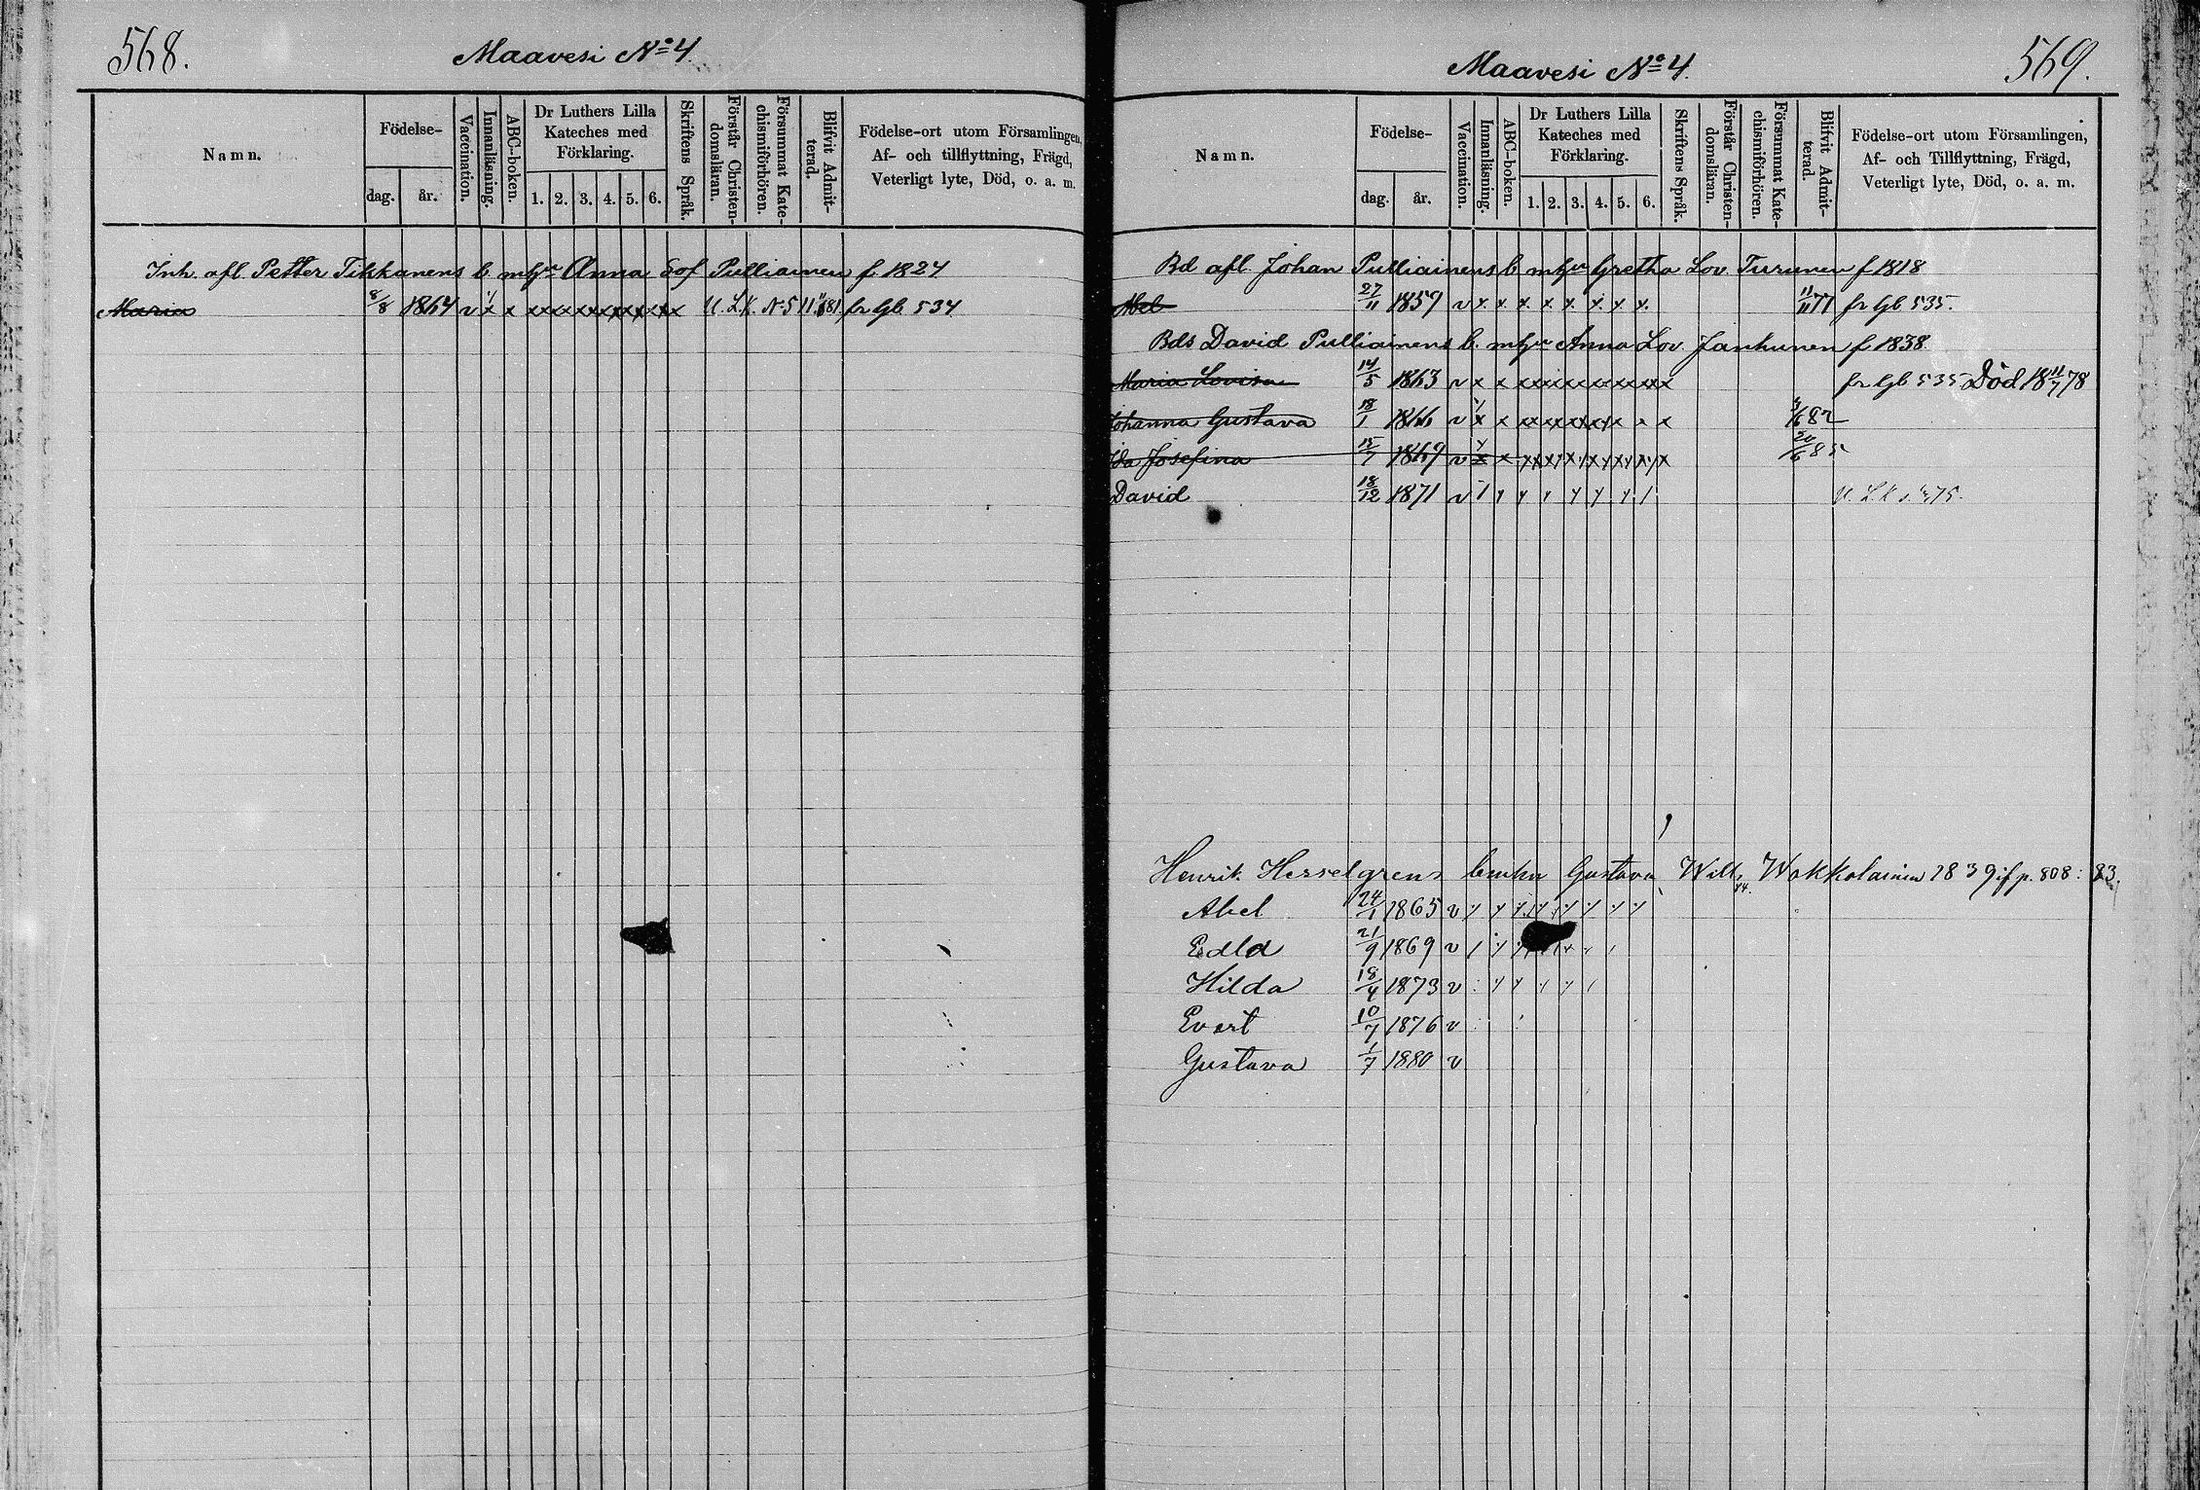 568.
Maavesi No 4.
Namn.
Födelse-
dag.
år.
Vaccination.
Innanläsning.
ABC-boken.
Dr Luthers Lilla
Kateches med
Förklaring.
1. 2. 3. 4. 5. 6.
Skriftens Språk.
Förstår Christen-
domsläran.
Försummat Kate-
chismiförhören.
Blifvit Admit-
terad.
Födelse-ort utom Församlingen,
Af- och tillflyttning, Frägd,
Veterligt lyte, Död, o. a. m.
Inh. afl. Petter Tikkanens b. m hu Anna Sof Pulliainen f. 1824
Maria 8/8 1864 v x x x x x x x x x U. L. K. N. 5 81 fr Gb 534
Maavesi No 4.
569.
Namn.
Födelse-
dag.
år.
Vaccination.
Innanläsning.
ABC-boken.
Dr Luthers Lilla
Kateches med
Förklaring.
1. 2. 3. 4. 5. 6.
Skriftens Språk.
Förstår Christen-
domsläran.
Försummat Kate-
chismiförhören.
Blifvit Admit-
terad.
Födelse-ort utom Församlingen,
Af- och Tillflyttning, Frägd,
Veterligt lyte, Död, o. a. m.
Bd afl. Johan Pulliainens b. m hu Gretha Lov. Turunen f 1818
Abel 27/11 1859 v x x x x x x x x 11/11 77 fr Gb 535.
Bds David Pulliainens b. m hu Anna Lov. Janhunen f 1838
Maria Lovisa 14/5 1863 v x x x x x x x x x fr Gb 535 Död 18 11/7 78
Johanna Gustava 18/1 1866 v x x x x x x x x x 82
Ida Josefina 15/7 1869 v x x x x x x x x x 20/6 85
David 18/12 1871 v
Henrik Herselgrens Gustava Wilh. Wokkolainen 1839 if p. 808: 83.
Abel 24/1 1865 v
Edla 21/9 1869 v
Hilda 18/4 1873 v
Evert 10/7 1876 v
Gustava 1/7 1880 v